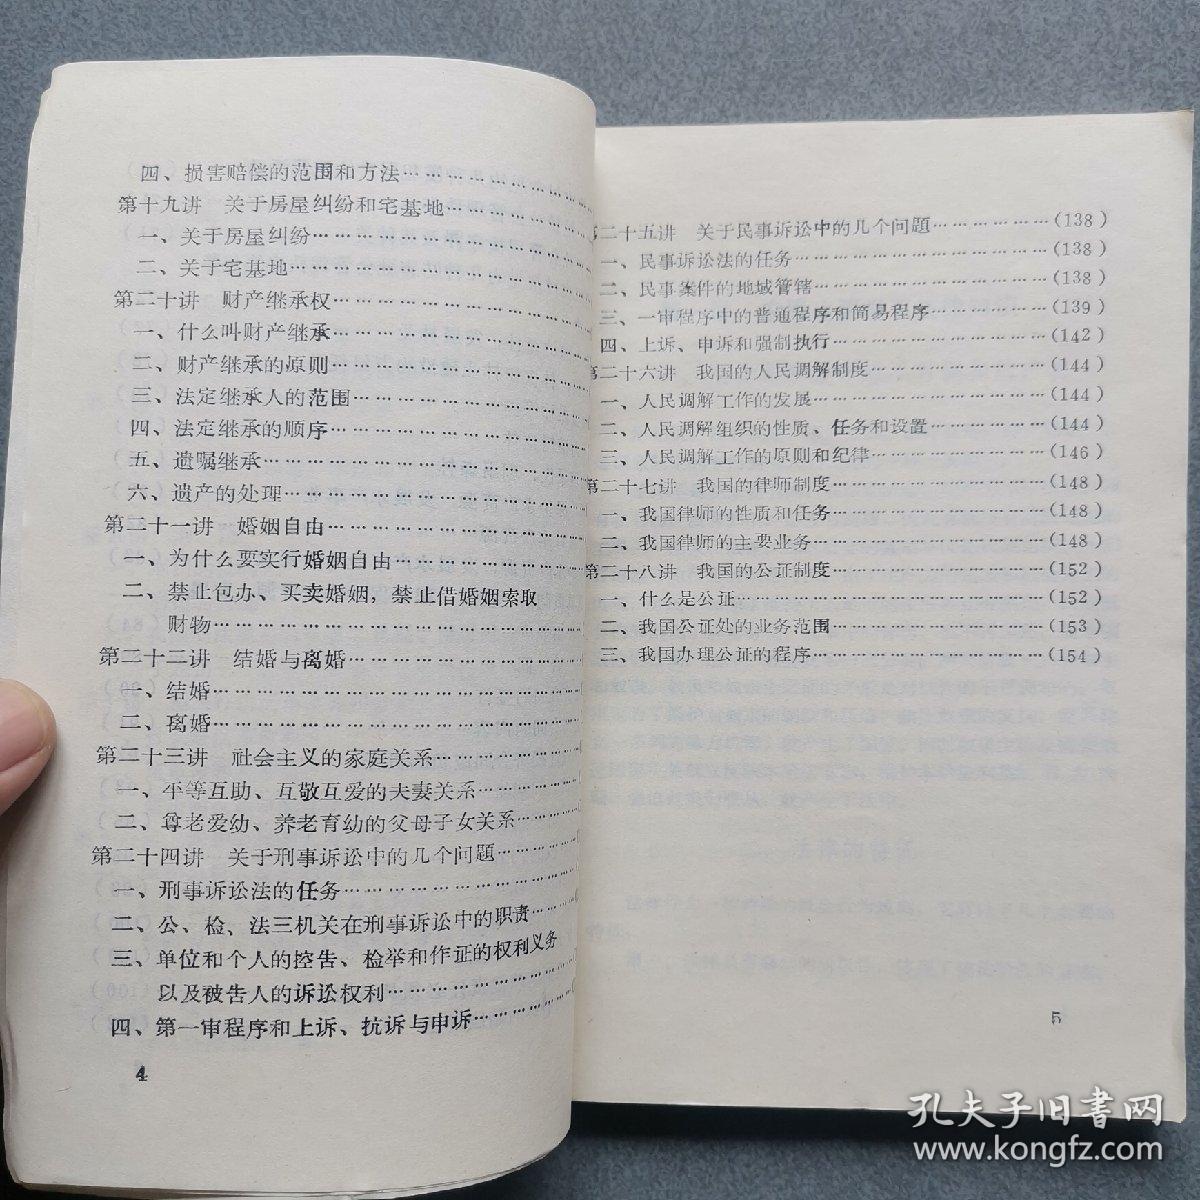 四、损害赔偿的范围和方法………………………
第十九讲 关于房屋纠纷和宅基地………………
一、关于房屋纠纷………………………………
二、关于宅基地…………………………………
第二十讲 财产继承权……………………………
一、什么叫财产继承……………………………
二、财产继承的原则……………………………
三、法定继承人的范围…………………………
四、法定继承的顺序……………………………
五、遗嘱继承……………………………………
六、遗产的处理…………………………………
第二十一讲 婚姻自由……………………………
一、为什么要实行婚姻自由……………………
二、禁止包办、买卖婚姻，禁止借婚姻索取
财物………………………………………
第二十二讲 结婚与离婚…………………………
一、结婚…………………………………………
二、离婚…………………………………………
第二十三讲 社会主义的家庭关系………………
一、平等互助、互敬互爱的夫妻关系…………
二、尊老爱幼、养老育幼的父母子女关系……
第二十四讲 关于刑事诉讼中的几个问题………
一、刑事诉讼法的任务…………………………
二、公、检、法三机关在刑事诉讼中的职责……
三、单位和个人的控告、检举和作证的权利义务
以及被告人的诉讼权利……………………
四、第一审程序和上诉、抗诉与申诉……………
4
二十五讲 关于民事诉讼中的几个问题……………(138)
一、民事诉讼法的任务……………………………(138)
二、民事案件的地域管辖…………………………(138)
三、一审程序中的普通程序和简易程序…………(139)
四、上诉、申诉和强制执行………………………(142)
第二十六讲 我国的人民调解制度…………………(144)
一、人民调解工作的发展…………………………(144)
二、人民调解组织的性质、任务和设置…………(144)
三、人民调解工作的原则和纪律…………………(146)
第二十七讲 我国的律师制度………………………(148)
一、我国律师的性质和任务………………………(148)
二、我国律师的主要业务…………………………(148)
第二十八讲 我国的公证制度………………………(152)
一、什么是公证……………………………………(152)
二、我国公证处的业务范围………………………(153)
三、我国办理公证的程序…………………………(154)
5
孔夫子旧书网
www.kongfz.com